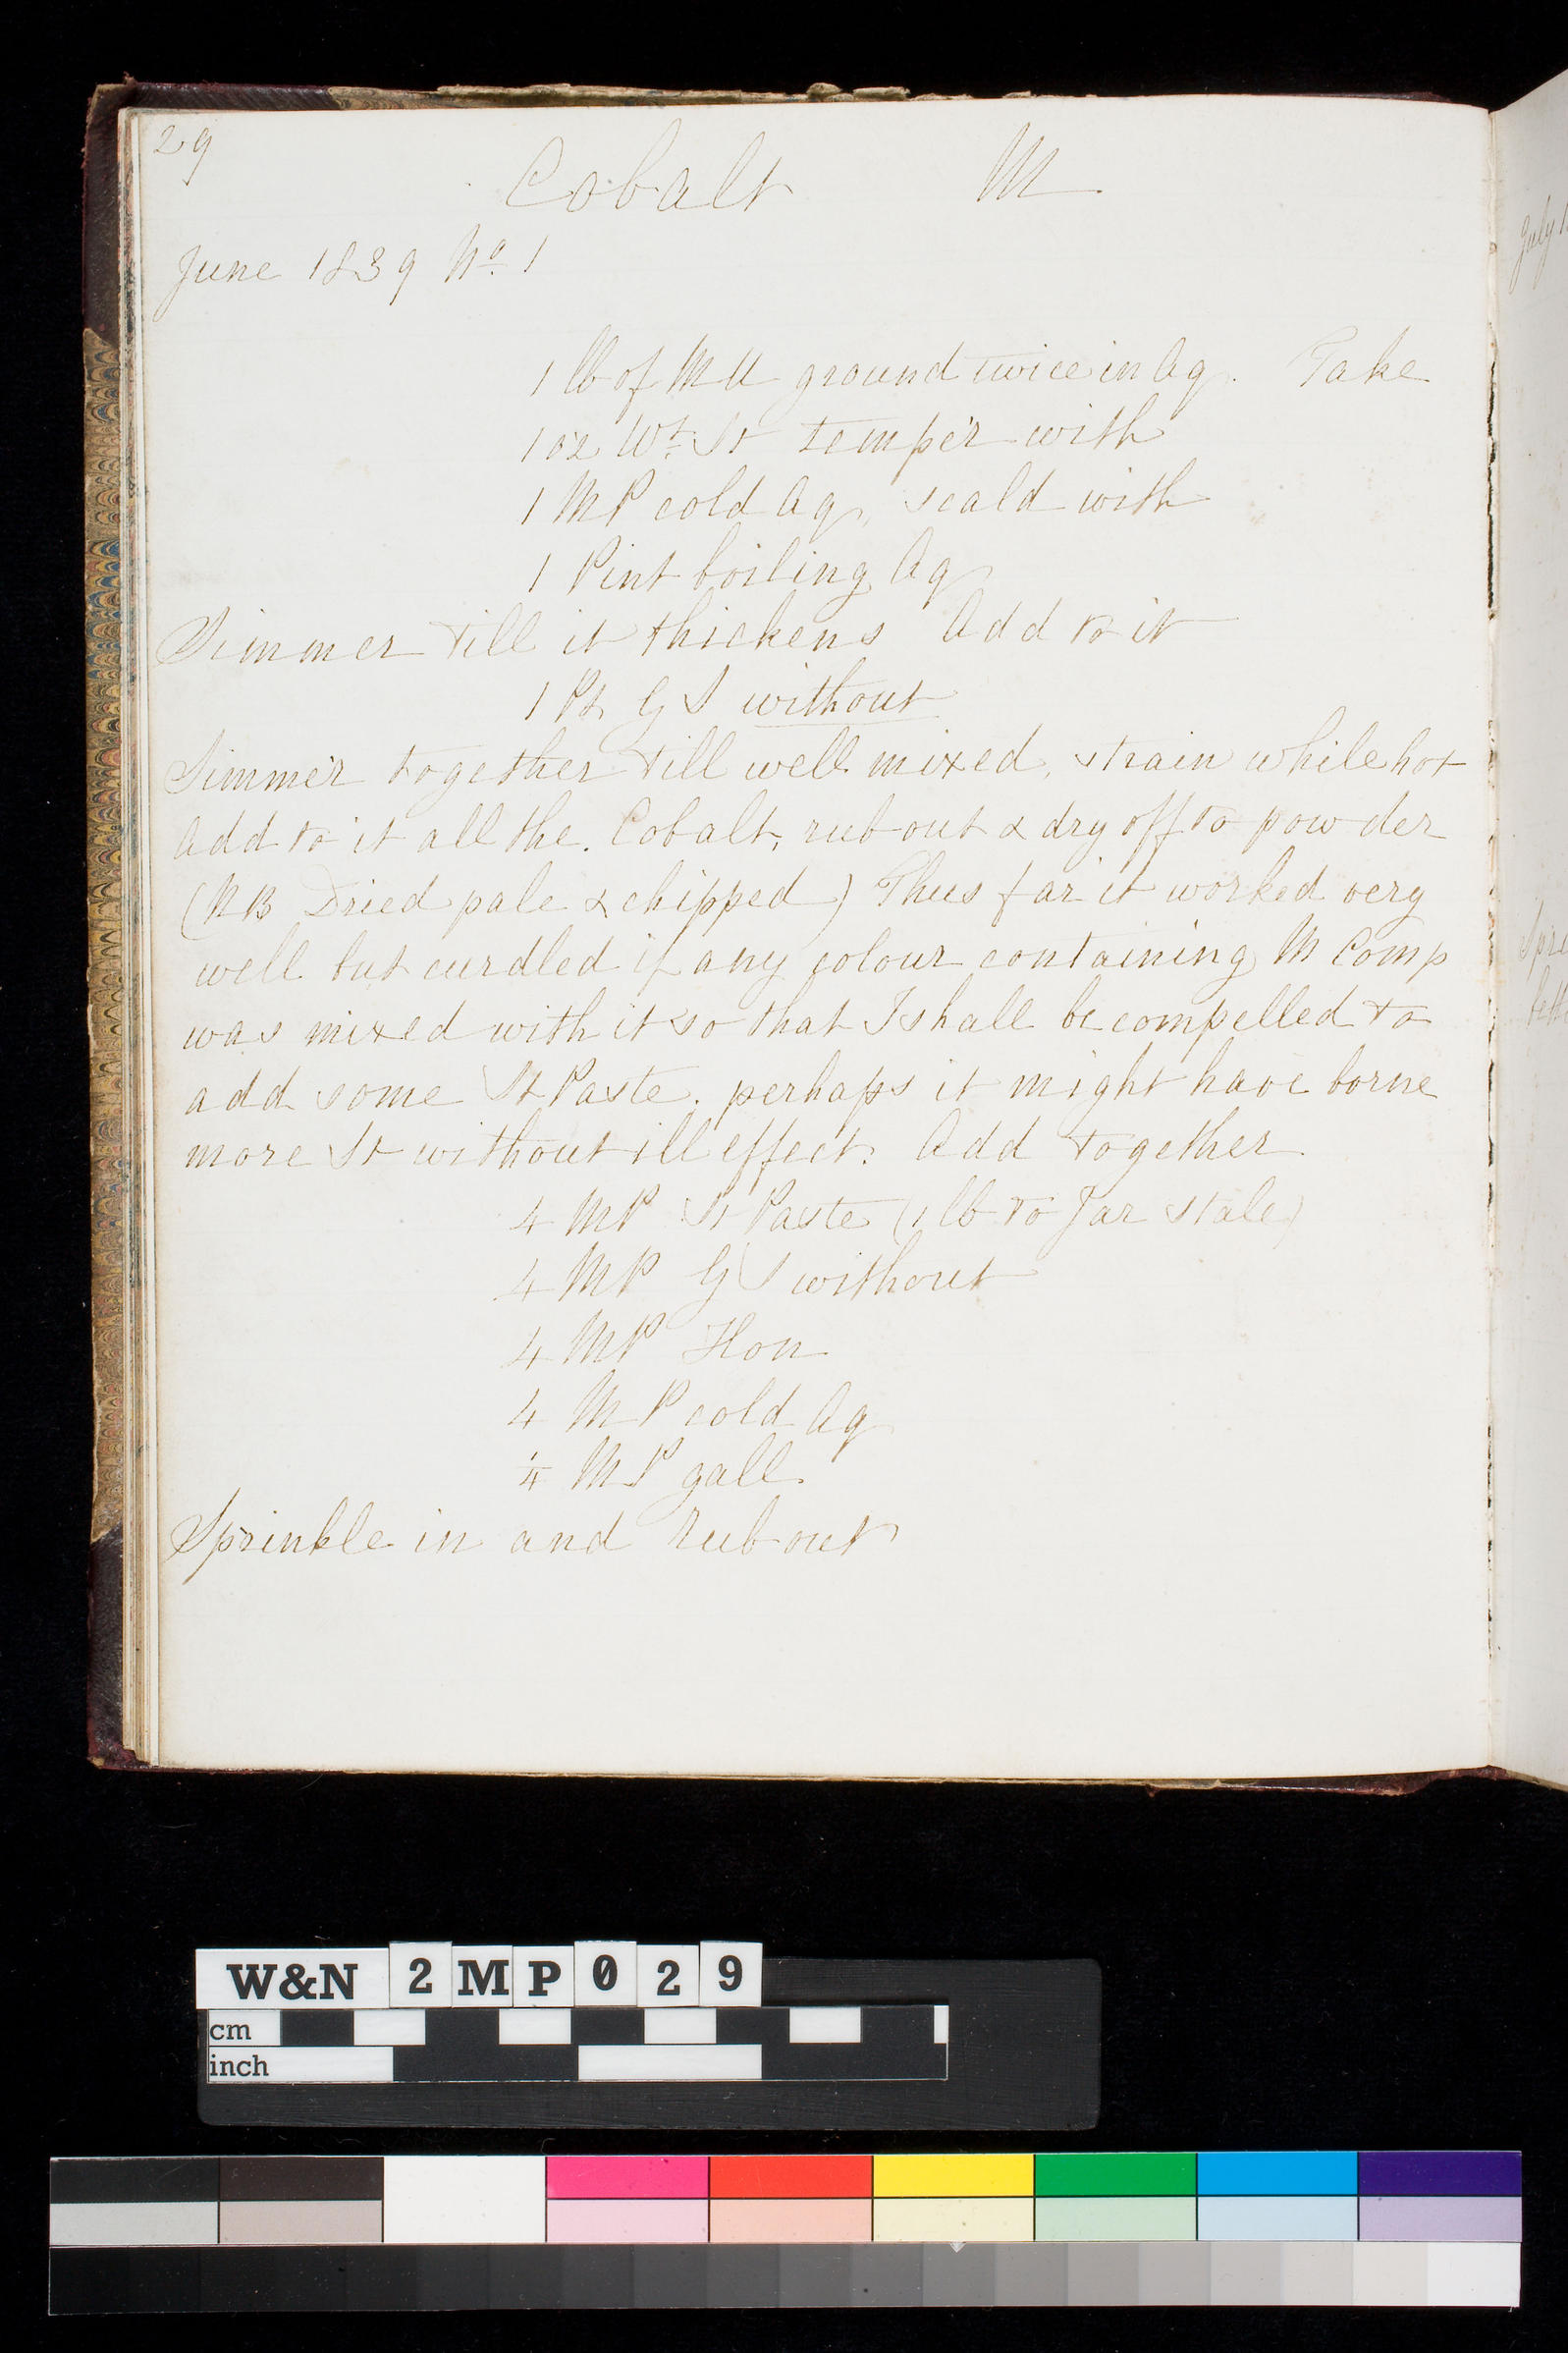 29
Cobalt M
June 1839 No. 1
1 lb of MU ground twice in Aq. Take
1 oz Wt. St temper with
1 MP cold Aq, scald with
1 Pint boiling Aq
Simmer till it thickens Add to it
1 Pt G S without
Simmer together till well mixed, strain while hot
Add to it all the Cobalt, rub out & dry off to powder
(NB Dried pale & chipped) Thus far it worked very
well but curdled if any colour containing M Comp
was mixed with it so that I shall be compelled to
add some St Paste. perhaps it might have borne
more St without ill effect. Add together
4 MP St Paste (1 lb to Jar stale)
4 MP G S without
4 MP Hon
4 MP cold Aq
¼ MP gall
Sprinkle in and rub out
July 1
Spri
W&N 2MP029
cm
inch